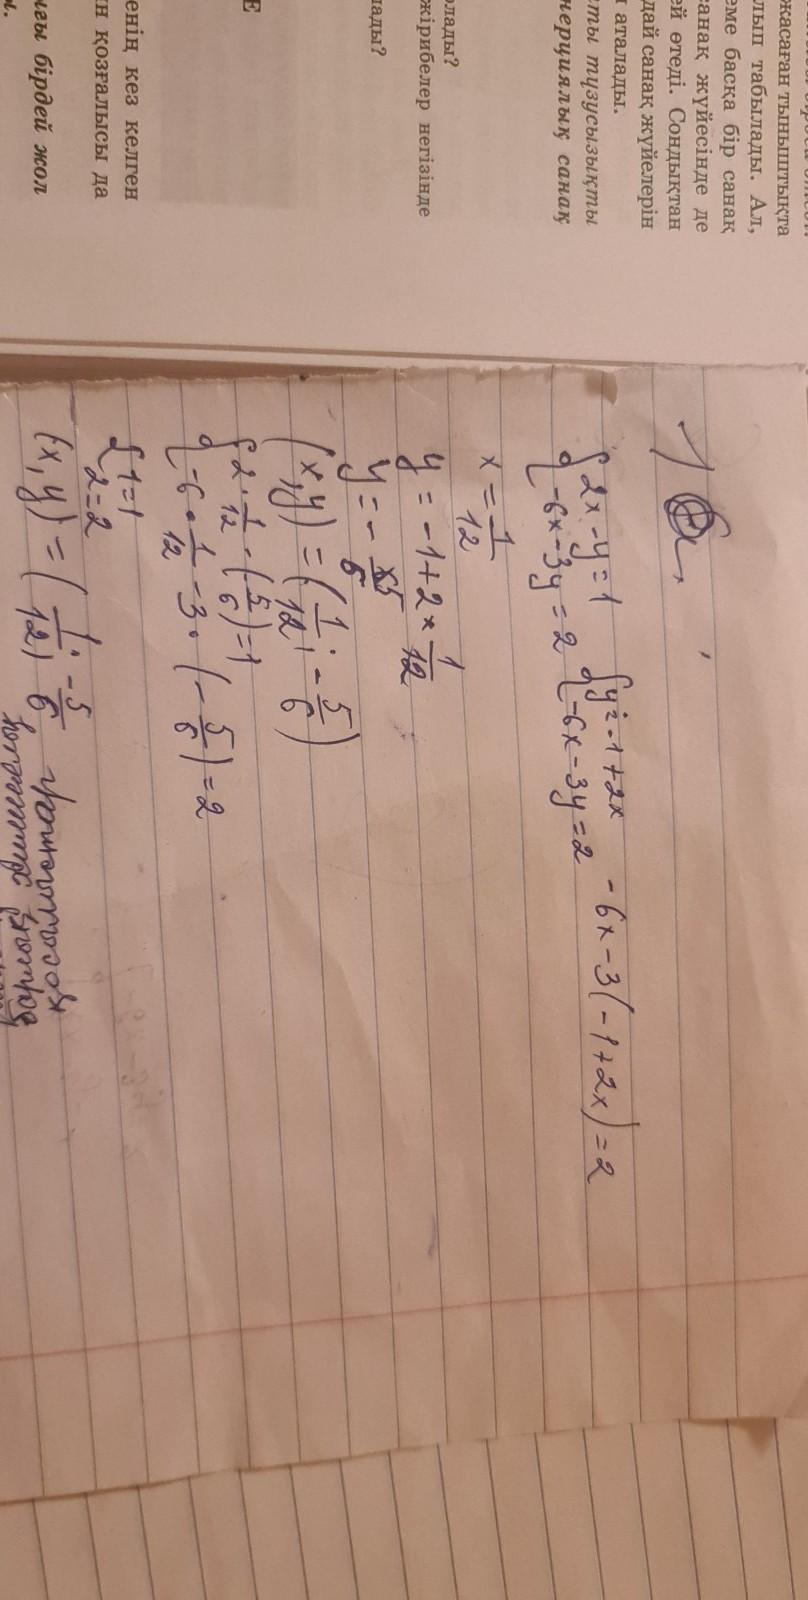 жасаған тыныштықта
лып табылады. Ал,
еме басқа бір санақ
санақ жүйесінде де
ей өтеді. Сондықтан
дай санақ жүйелерін
аталады.
сты түзусызықты
нерциялық санақ
олады?
жірибелер негізінде
лады?
Е
енің кез келген
ін қозғалысы да
ғы бірдей жол
1
{ 2x - y = 1 { y = -1 + 2x -6x - 3(-1 + 2x) = 2
{ -6x - 3y = 2 { -6x - 3y = 2
x = 1/12
y = -1 + 2 × 1/12
y = - 5/6
(x, y) = (1/12; - 5/6)
{ 2 · 1/12 - (5/6) = 1
{ -6 · 1/12 - 3 · (- 5/6) = 2
{ 1 = 1
{ 2 = 2
(x, y) = (1/12; - 5/6)
қосылыстар
барлық химиялық